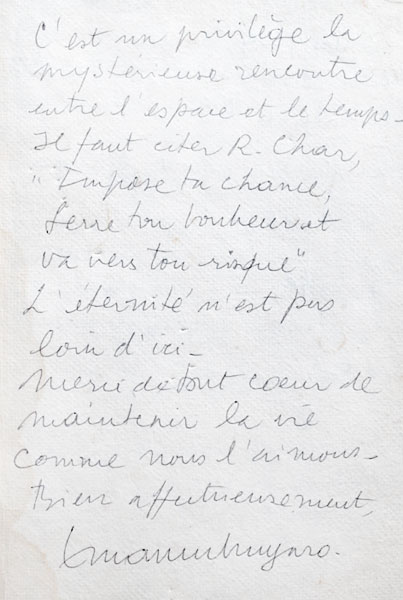 C'est un privilège la
mystérieuse rencontre
entre l'espace et le temps -
Il faut citer R. Char,
"Impose ta chance,
Serre ton bonheur et
va vers ton risque"
L'éternité n'est pas
loin d'ici -
Merci de tout coeur de
maintenir la vie
comme nous l'aimons -
Bien affectueusement,